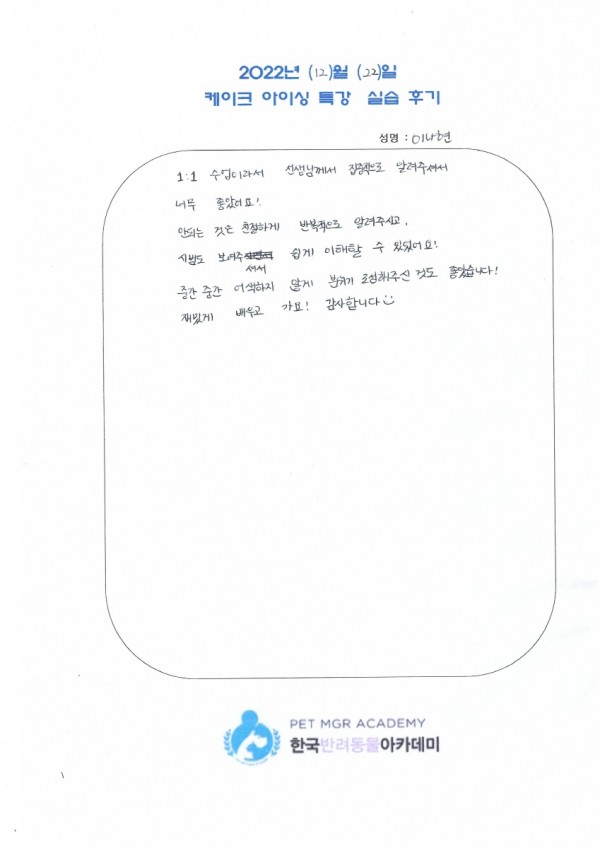 2022년 (12)월 (22)일
케이크 아이싱 특강 실습 후기
성명 : 이나현
1:1 수업이라서 선생님께서 집중적으로 알려주셔서
너무 좋았어요!
안되는 것은 친절하게 반복적으로 알려주시고,
시범도 보여주셔서 쉽게 이해할 수 있었어요!
중간 중간 어색하지 않게 분위기 조성해주신 것도 좋았습니다!
재밌게 배우고 가요! 감사합니다
PET MGR ACADEMY
한국반려동물아카데미